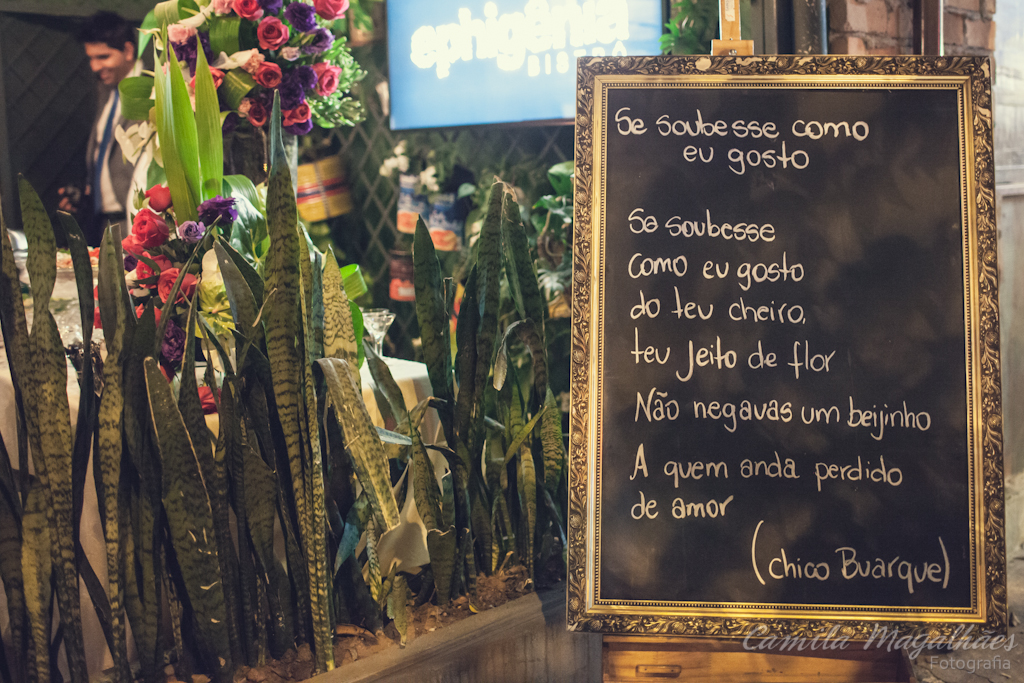 ephigênia
BISTRÔ
Se soubesse como
eu gosto
Se soubesse
como eu gosto
do teu cheiro,
teu jeito de flor
Não negavas um beijinho
A quem anda perdido
de amor
(chico Buarque)
Camila Magalhães
Fotografia